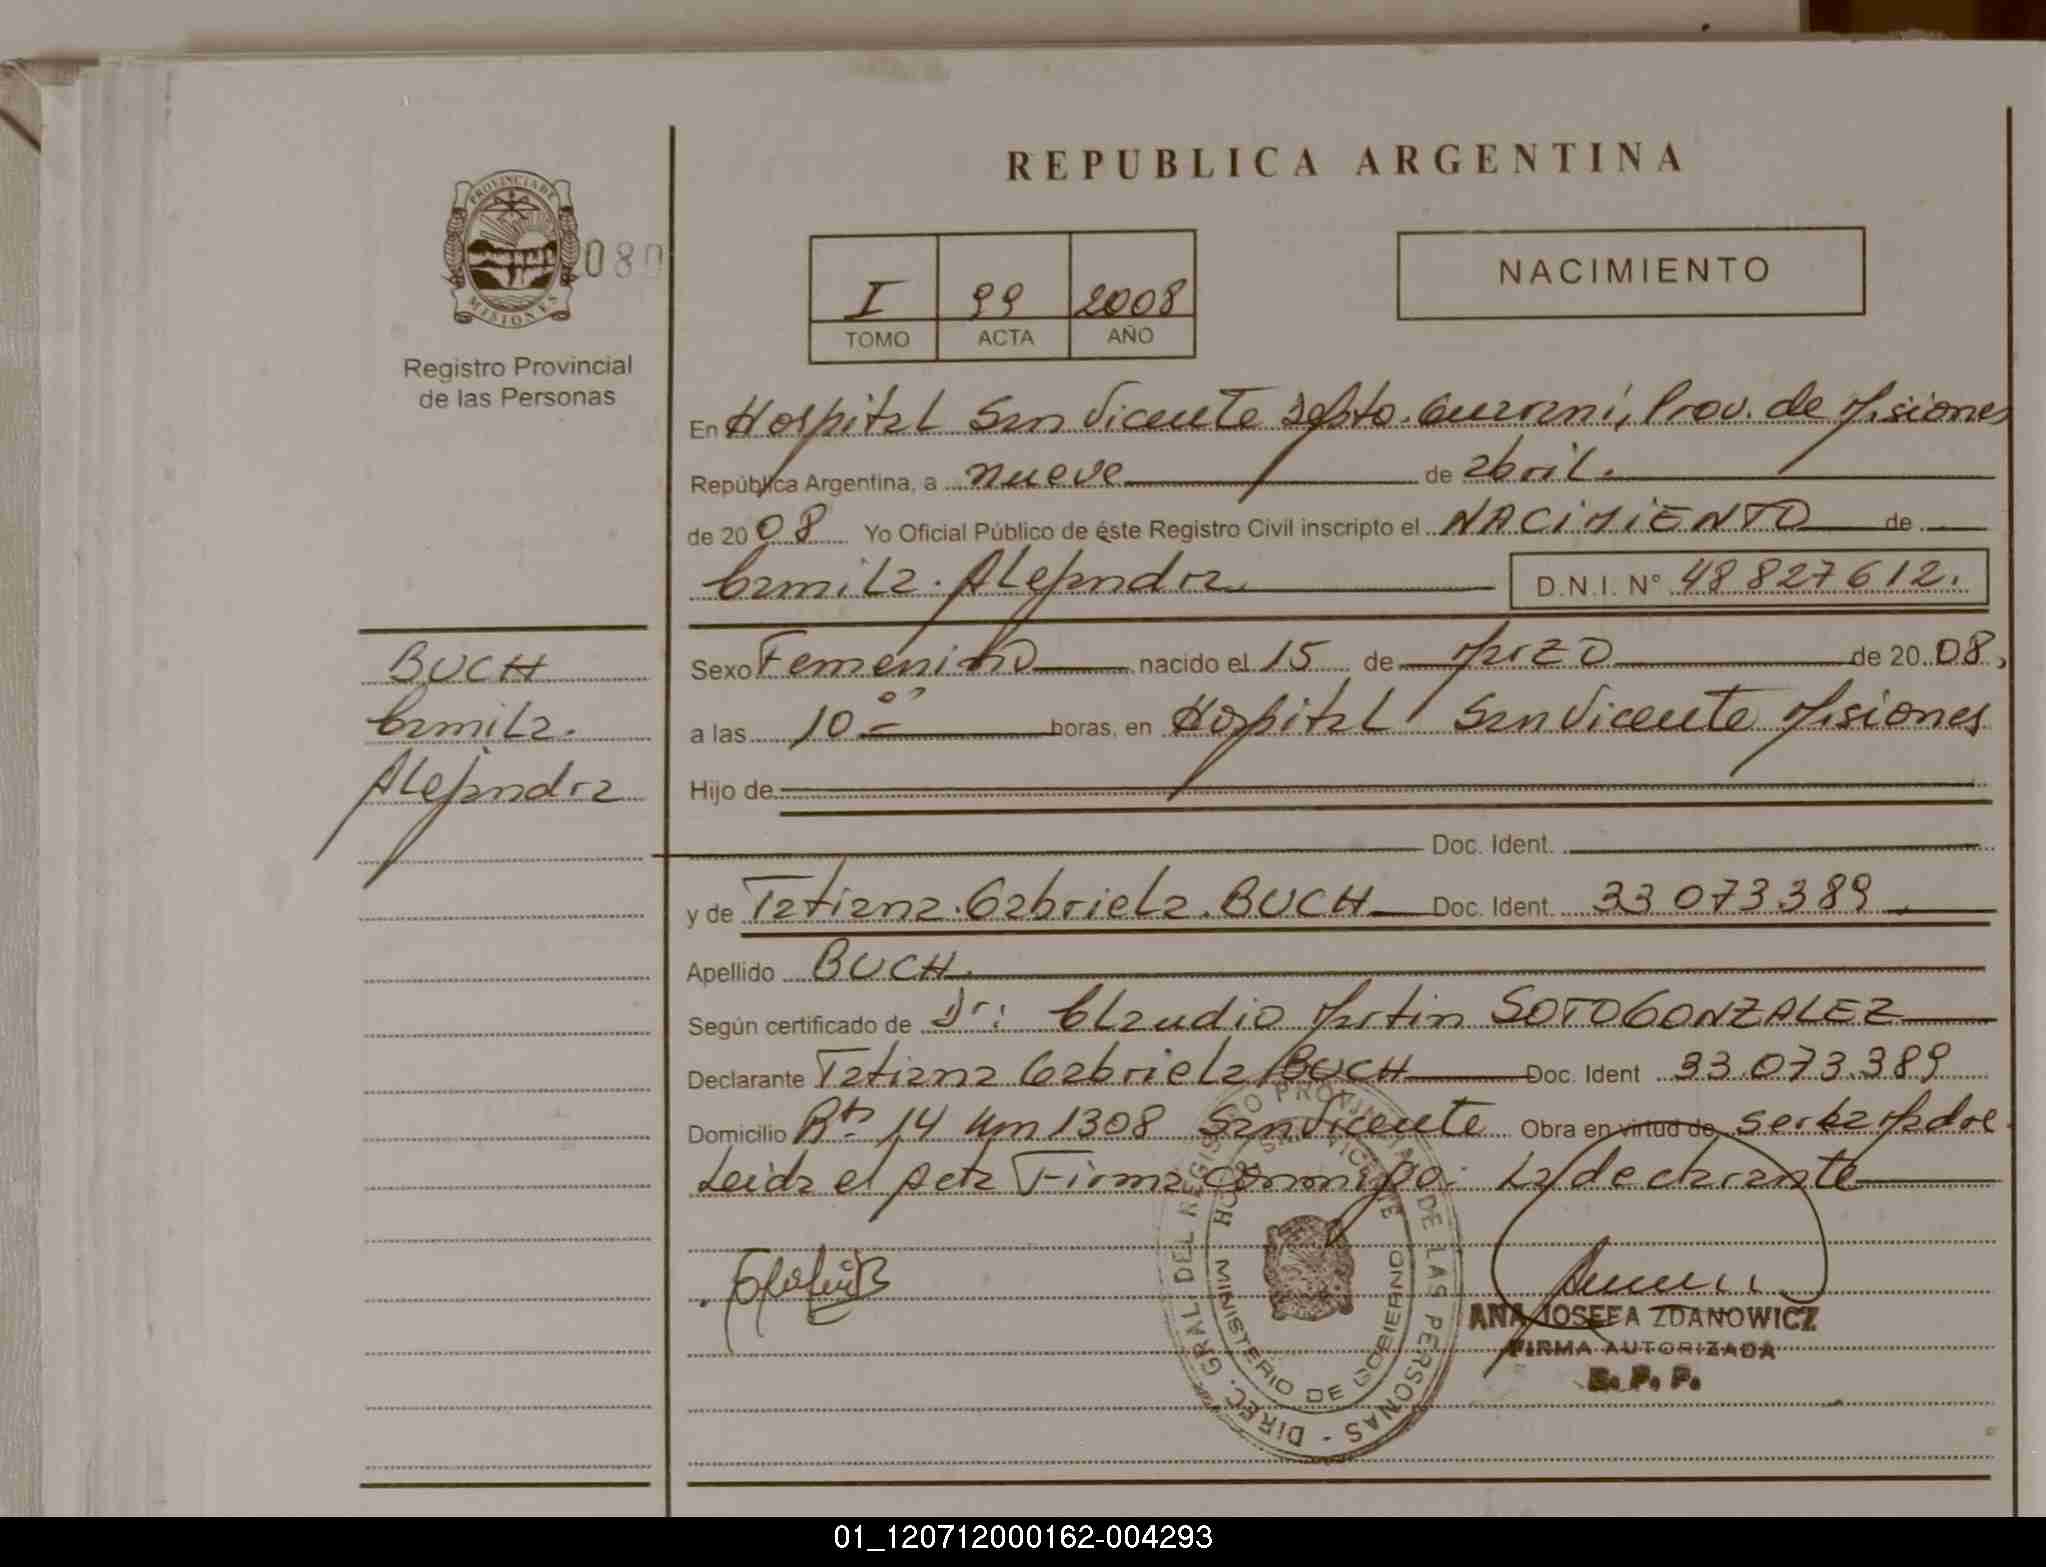 REPUBLICA ARGENTINA
PROVINCIA DE
MISIONES
080
Registro Provincial
de las Personas
I 99 2008
TOMO ACTA AÑO
NACIMIENTO
En Hospital San Vicente Dpto. Guaraní, Prov. de Misiones
República Argentina, a nueve de abril.
de 2008 Yo Oficial Público de éste Registro Civil inscripto el NACIMIENTO de
Camila. Alejandra. D.N.I. N° 48827612.
BUCH
Camila.
Alejandra
Sexo Femenino nacido el 15 de Marzo de 2008,
a las 10 horas, en Hospital San Vicente Misiones
Hijo de
Doc. Ident.
y de Tatiana. Gabriela. BUCH Doc. Ident. 33 073389
Apellido BUCH.
Según certificado de Dr: Claudio Martin SOTO GONZALEZ
Declarante Tatiana Gabriela BUCH Doc. Ident 33.073.389
Domicilio Rta. 14 Km 1308 San Vicente Obra en virtud de ser la Madre.
Leida el Acta Firma conmigo: La declarante
DIREC. GRAL. DEL REGISTRO PROVINCIAL DE LAS PERSONAS
HOSP. SAN VICENTE
MINISTERIO DE GOBIERNO
ANA JOSEFA ZDANOWICZ
FIRMA AUTORIZADA
R. P. P.
01_120712000162-004293